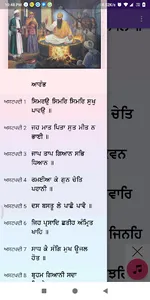 ਆਰੰਭ
ਅਸਟਪਦੀ 1 ਸਿਮਰਉ ਸਿਮਰਿ ਸਿਮਰਿ ਸੁਖੁ
ਪਾਵਉ ॥
ਅਸਟਪਦੀ 2 ਜਹ ਮਾਤ ਪਿਤਾ ਸੁਤ ਮੀਤ ਨ
ਭਾਈ ॥
ਅਸਟਪਦੀ 3 ਜਾਪ ਤਾਪ ਗਿਆਨ ਸਭਿ
ਧਿਆਨ ॥
ਅਸਟਪਦੀ 4 ਰਮਈਆ ਕੇ ਗੁਨ ਚੇਤਿ
ਪਰਾਨੀ ॥
ਅਸਟਪਦੀ 5 ਦਸ ਬਸਤੂ ਲੇ ਪਾਛੈ ਪਾਵੈ ॥
ਅਸਟਪਦੀ 6 ਜਿਹ ਪ੍ਰਸਾਦਿ ਛਤੀਹ ਅੰਮ੍ਰਿਤ
ਖਾਹਿ ॥
ਅਸਟਪਦੀ 7 ਸਾਧ ਕੈ ਸੰਗਿ ਮੁਖ ਊਜਲ
ਹੋਤ ॥
ਅਸਟਪਦੀ 8 ਬ੍ਰਹਮ ਗਿਆਨੀ ਸਦਾ
ਚੇਤਿ
ਵਨ
ਵਾਰਿ
ਜਿਨਹਿ